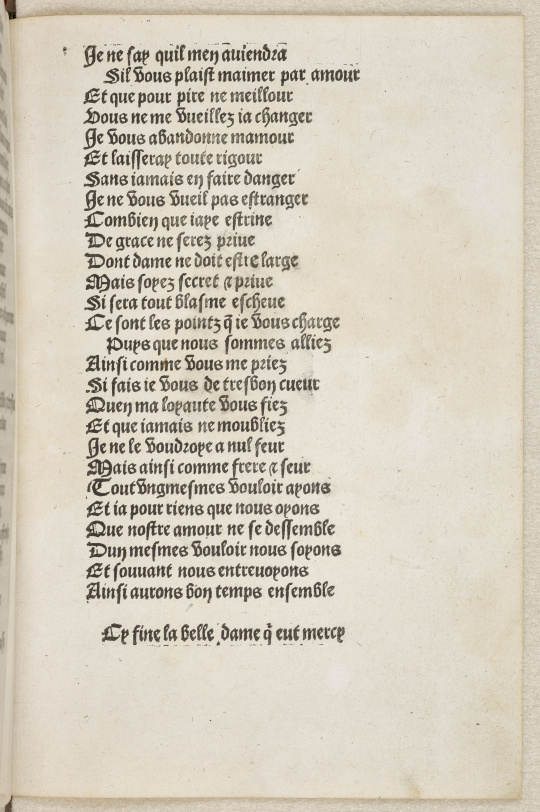 Je ne say quil men auiendra
Sil vous plaist maimer par amour
Et que pour pire ne meillour
Vous ne me vueillez ia changer
Je vous abandonne mamour
Et laisseray toute rigour
Sans iamais en faire danger
Je ne vous vueil pas estranger
Combien que iaye estrine
De grace ne serez priue
Dont dame ne doit estre large
Mais soyez secret & priue
Si sera tout blasme escheue
Ce sont les pointz q̃ ie vous charge
Puys que nous sommes alliez
Ainsi comme vous me priez
Si fais ie vous de tresbon cueur
Quen ma loyaute vous fiez
Et que iamais ne moubliez
Je ne le voudroye a nul feur
Mais ainsi comme frere & seur
Tout vngmesmes vouloir ayons
Et ia pour riens que nous oyons
Que nostre amour ne se dessemble
Dun mesmes vouloir nous soyons
Et souuant nous entreuoyons
Ainsi aurons bon temps ensemble
Cy fine la belle dame q̃ eut mercy